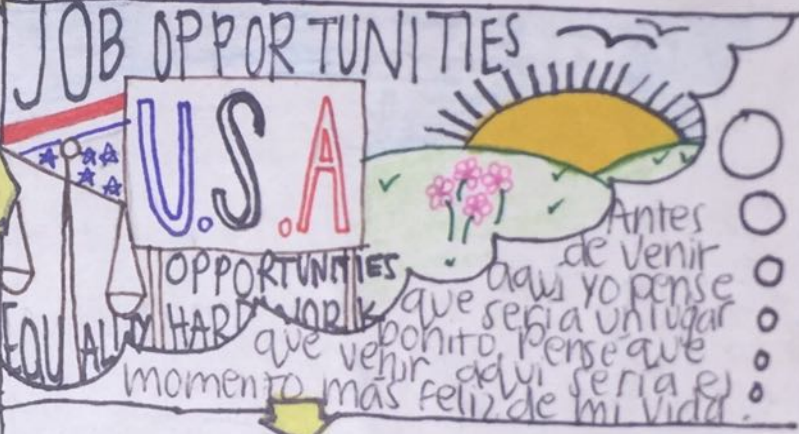 JOB OPPORTUNITIES
U.S.A
OPPORTUNITIES
EQUALITY HARD WORK
Antes
de venir
aqui yo pense
que seria un lugar
bonito. Pense que
que venir aqui seria el
momento más feliz de mi vida.